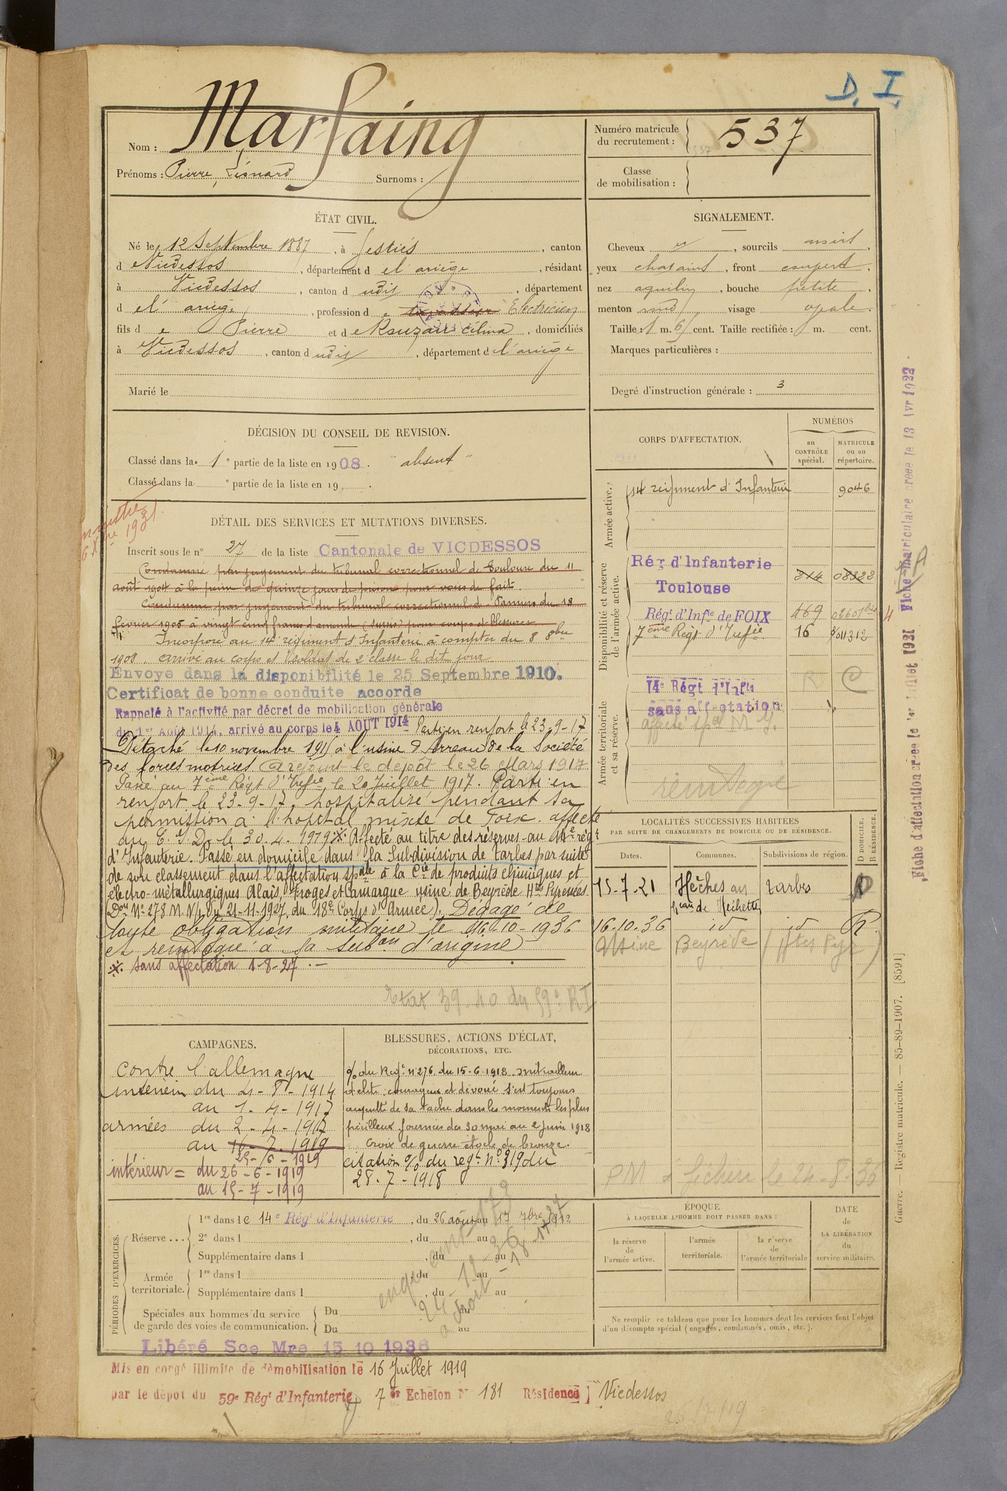 D. I.
Nom : Marfaing
Prénoms : Pierre, Léonard Surnoms :
Numéro matricule du recrutement : 537
Classe de mobilisation :
ÉTAT CIVIL.
Né le 12 Septembre 1887, à Gestiés, canton
d Vicdessos, département d el ariège, résidant
à Vicdessos, canton d udit, département
d el' ariège, profession d e Electricien
fils d e Pierre et d e Rouzaur Célina, domiciliés
à Vicdessos, canton d udit, département d l'ariège
Marié le
SIGNALEMENT.
Cheveux , sourcils noirs,
yeux chatains, front couvert,
nez aquilin, bouche petite,
menton rond, visage ovale.
Taille : 1 m. 67 cent. Taille rectifiée : m. cent.
Marques particulières :
Degré d'instruction générale : 3
DÉCISION DU CONSEIL DE REVISION.
Classé dans la 1e partie de la liste en 1908. "absent"
Classé dans la e partie de la liste en 19 .
DÉTAIL DES SERVICES ET MUTATIONS DIVERSES.
Inscrit sous le n° 27 de la liste Cantonale de VICDESSOS
Condamné par jugement du tribunal correctionnel de Toulouse du 11
août 1904 à la peine de quinze jours de prison pour voies de fait.
Condamné par jugement du tribunal correctionnel de Pamiers du 18
février 1908 à vingt cinq francs d'amende (sursis) pour coups et blessures
Incorporé au 14e régiment d'Infanterie à compter du 8 8bre
1908. arrivé au corps et soldat de 2e classe le dit jour
Envoyé dans la disponibilité le 25 Septembre 1910.
Certificat de bonne conduite accordé
Rappelé à l'activité par décret de mobilisation générale
du 1er Août 1914, arrivé au corps le 4 AOUT 1914 Parti en renfort le 23-9-17
Détaché le 10 novembre 1915 à l'usine d'Arreau de la Société
des forces motrices. A rejoint le dépôt le 26 Mars 1917
Passé au 7ème Régt d'Inftie le 20 Juillet 1917. Parti en
renfort le 23-9-17, hospitalisé pendant sa
permission à l'hopital mixte de Foix. affecté
au C.I.D. le 30.4.1919. * Affecté au titre des réserves au 14e régt
d'Infanterie. Passé en domicile dans la Subdivision de Tarbes par suite
de son classement dans l'affectation spale à la Cie de produits chimiques et
électro-métallurgiques Alais, Froges et Camargue usine de Beyrède Htes Pyrénées
Don N° 278 M.N/1 du 21-11-1927, du 18e Corps d'Armée). Dégagé de
toute obligation militaire le 15-10-1936
et renvoyé à sa subon d'origine
* sans affectation 1-8-27.
Etat 39-40 du 59e RI
CORPS D'AFFECTATION.
NUMÉROS
au CONTRÔLE spécial.
MATRICULE ou au répertoire.
Armée active.
14 régiment d'Infanterie 9046
Disponibilité et réserve de l'armée active.
Rég d'Infanterie
Toulouse 814 08328
Régt d'Infie de FOIX 469
7ème Régt d'Inftie 16 011312
Armée territoriale et sa réserve.
14e Régt d'Infie R C
sans affectation
affecté spal M.G.
renseigné
LOCALITÉS SUCCESSIVES HABITÉES
PAR SUITE DE CHANGEMENTS DE DOMICILE OU DE RÉSIDENCE.
Dates. Communes. Subdivisions de région. D DOMICILE. R RÉSIDENCE.
15-7-21 Hèches au Tarbes D
16.10.36 id id R
Usine Beyrède (Htes Pyr)
PM + fichier le 24-8-36
CAMPAGNES.
Contre l'allemagne
intérieur du 4-8-1914
au 1-4-1917
armées du 2-4-1917
au 16-7-1919
25-6-1919
intérieur = du 26-6-1919
au 15-7-1919
BLESSURES, ACTIONS D'ÉCLAT,
DÉCORATIONS, ETC.
O/ du Régt n° 276 du 15-6-1918 mitrailleur
d'élite, courageux et dévoué s'est toujours
acquitté de sa tâche dans les moments les plus
périlleux journées du 30 mai au 2 juin 1918
Croix de guerre étoile de bronze.
citation O/ du régt N° 319 du
28-7-1918
PÉRIODES D'EXERCICES.
Réserve... 1re dans le 14e Régt d'Infanterie, du 26 août au 17 7bre 1912
2e dans l , du au
Supplémentaire dans l , du au
Armée territoriale. 1re dans l , du au
Supplémentaire dans l , du au
Spéciales aux hommes du service de garde des voies de communication. Du au
Du au
ÉPOQUE
À LAQUELLE L'HOMME DOIT PASSER DANS :
la réserve de l'armée active.
l'armée territoriale.
la réserve de l'armée territoriale
DATE de LA LIBÉRATION du service militaire.
Ne remplir ce tableau que pour les hommes dont les services font l'objet
d'un décompte spécial (engagés, condamnés, omis, etc.).
Libéré Sce Mre 15 10 1936
Mis en congé illimité de démobilisation le 16 Juillet 1919
par le dépôt du 59e Régt d'Infanterie 7e Echelon N° 181 Résidence Vicdessos
Fiche matriculaire créée le 13 Avr 1922
Fiche d'affectation créée le 1er Juillet 1921
Guerre. — Registre matricule. — 85-89-1907. [8591]